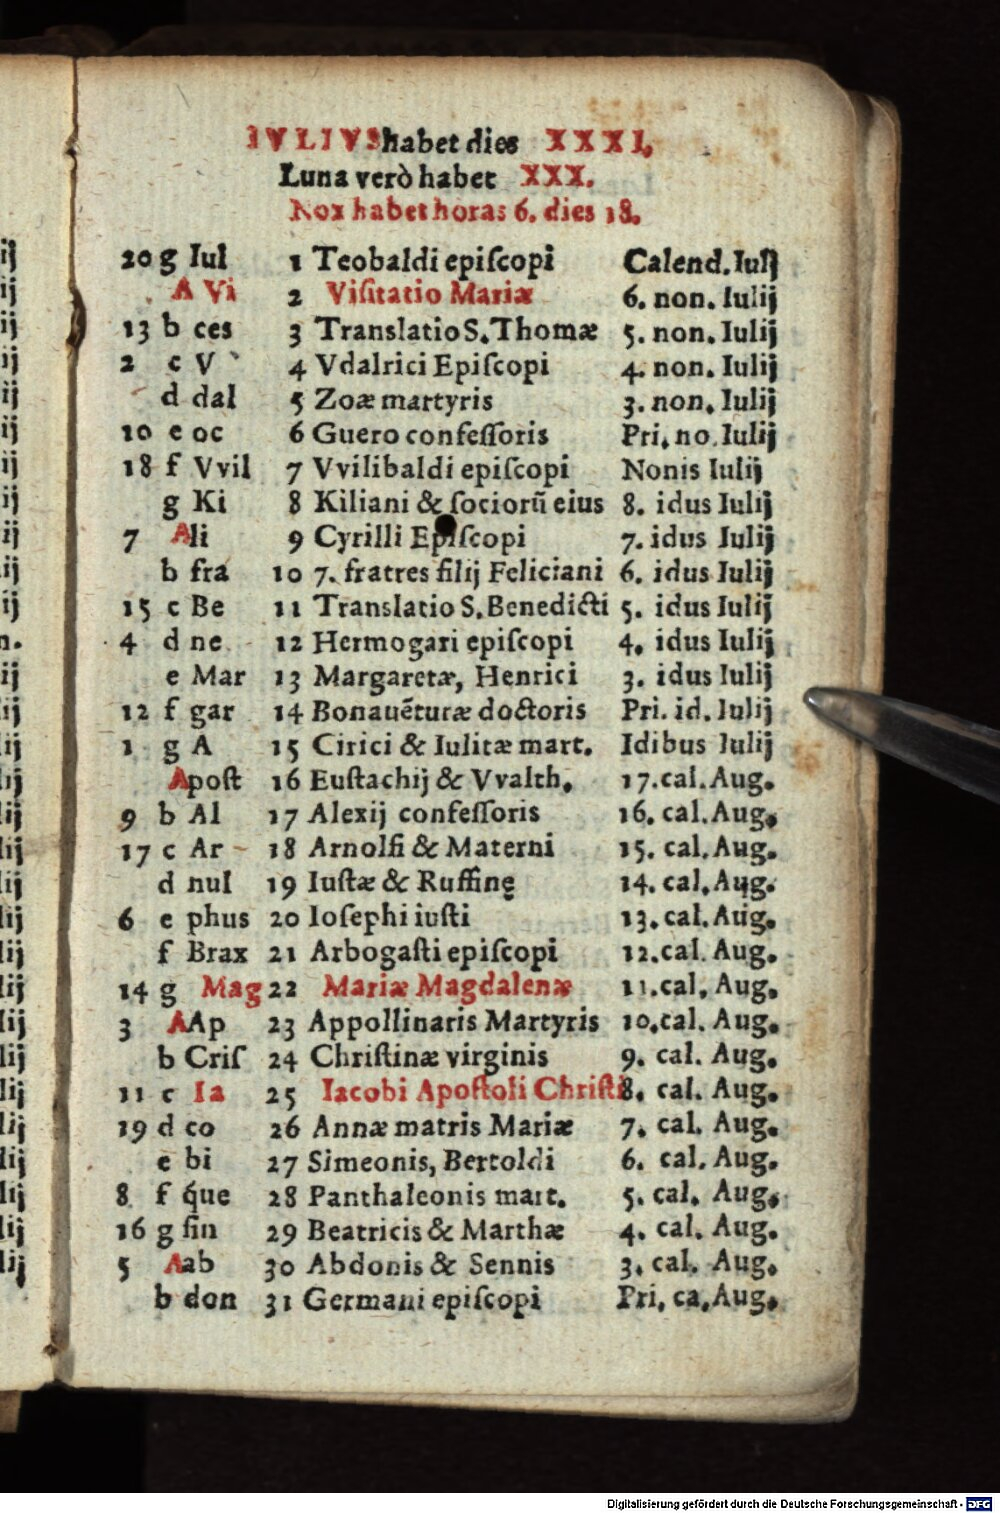 IVLIVS habet dies XXXI.
Luna verò habet XXX.
Nox habet horas 6. dies 18.
20 g Iul 1 Teobaldi epiſcopi Calend. Iulij
A Vi 2 Viſitatio Mariæ 6. non. Iulij
13 b ces 3 Translatio S. Thomæ 5. non. Iulij
2 c V 4 Vdalrici Epiſcopi 4. non. Iulij
d dal 5 Zoæ martyris 3. non. Iulij
10 e oc 6 Guero confeſſoris Pri. no. Iulij
18 f Vvil 7 Vvilibaldi epiſcopi Nonis Iulij
g Ki 8 Kiliani & ſociorũ eius 8. idus Iulij
7 Ali 9 Cyrilli Epiſcopi 7. idus Iulij
b fra 10 7. fratres filij Feliciani 6. idus Iulij
15 c Be 11 Translatio S. Benedicti 5. idus Iulij
4 d ne 12 Hermogari epiſcopi 4. idus Iulij
e Mar 13 Margaretæ, Henrici 3. idus Iulij
12 f gar 14 Bonauẽturæ doctoris Pri. id. Iulij
1 g A 15 Cirici & Iulitæ mart. Idibus Iulij
Apoſt 16 Euſtachij & Vvalth. 17. cal. Aug.
9 b Al 17 Alexij confeſſoris 16. cal. Aug.
17 c Ar 18 Arnolfi & Materni 15. cal. Aug.
d nul 19 Iuſtæ & Ruffinę 14. cal. Aug.
6 e phus 20 Ioſephi iuſti 13. cal. Aug.
f Brax 21 Arbogaſti epiſcopi 12. cal. Aug.
14 g Mag 22 Mariæ Magdalenæ 11. cal. Aug.
3 AAp 23 Appollinaris Martyris 10. cal. Aug.
b Criſ 24 Chriſtinæ virginis 9. cal. Aug.
11 c Ia 25 Iacobi Apoſtoli Chriſti 8. cal. Aug.
19 d co 26 Annæ matris Mariæ 7. cal. Aug.
e bi 27 Simeonis, Bertoldi 6. cal. Aug.
8 f q́ue 28 Panthaleonis mart. 5. cal. Aug.
16 g ſin 29 Beatricis & Marthæ 4. cal. Aug.
5 Aab 30 Abdonis & Sennis 3. cal. Aug.
b don 31 Germani epiſcopi Pri. ca. Aug.
Digitalisierung gefördert durch die Deutsche Forschungsgemeinschaft - DFG